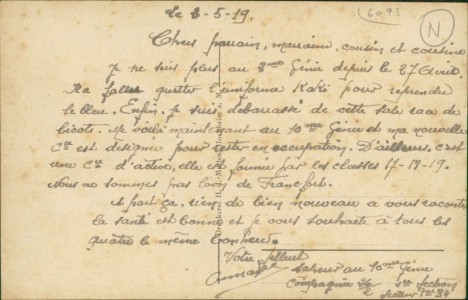 Le 2-5-19.
6093
N
Chers parrain, marraine, cousin et cousine
Je ne suis plus au 2ème Génie depuis le 27 Avril.
Il a fallu quitter l'uniforme Kaki pour reprendre
le bleu. Enfin, je suis débarrassé de cette sale race de
bicots. Me voilà maintenant au 10ème Génie et ma nouvelle
Cie est désignée pour rester en occupation. D'ailleurs, c'est
une Cie d'active, elle est formée par les classes 17-18-19.
Nous ne sommes pas loin de Francfort.
A part ça, rien de bien nouveau à vous raconter
la santé est bonne et je vous souhaite à tous les
quatre le même bonheur.
Votre filleul
sapeur au 10ème Génie
Compagnie
Section